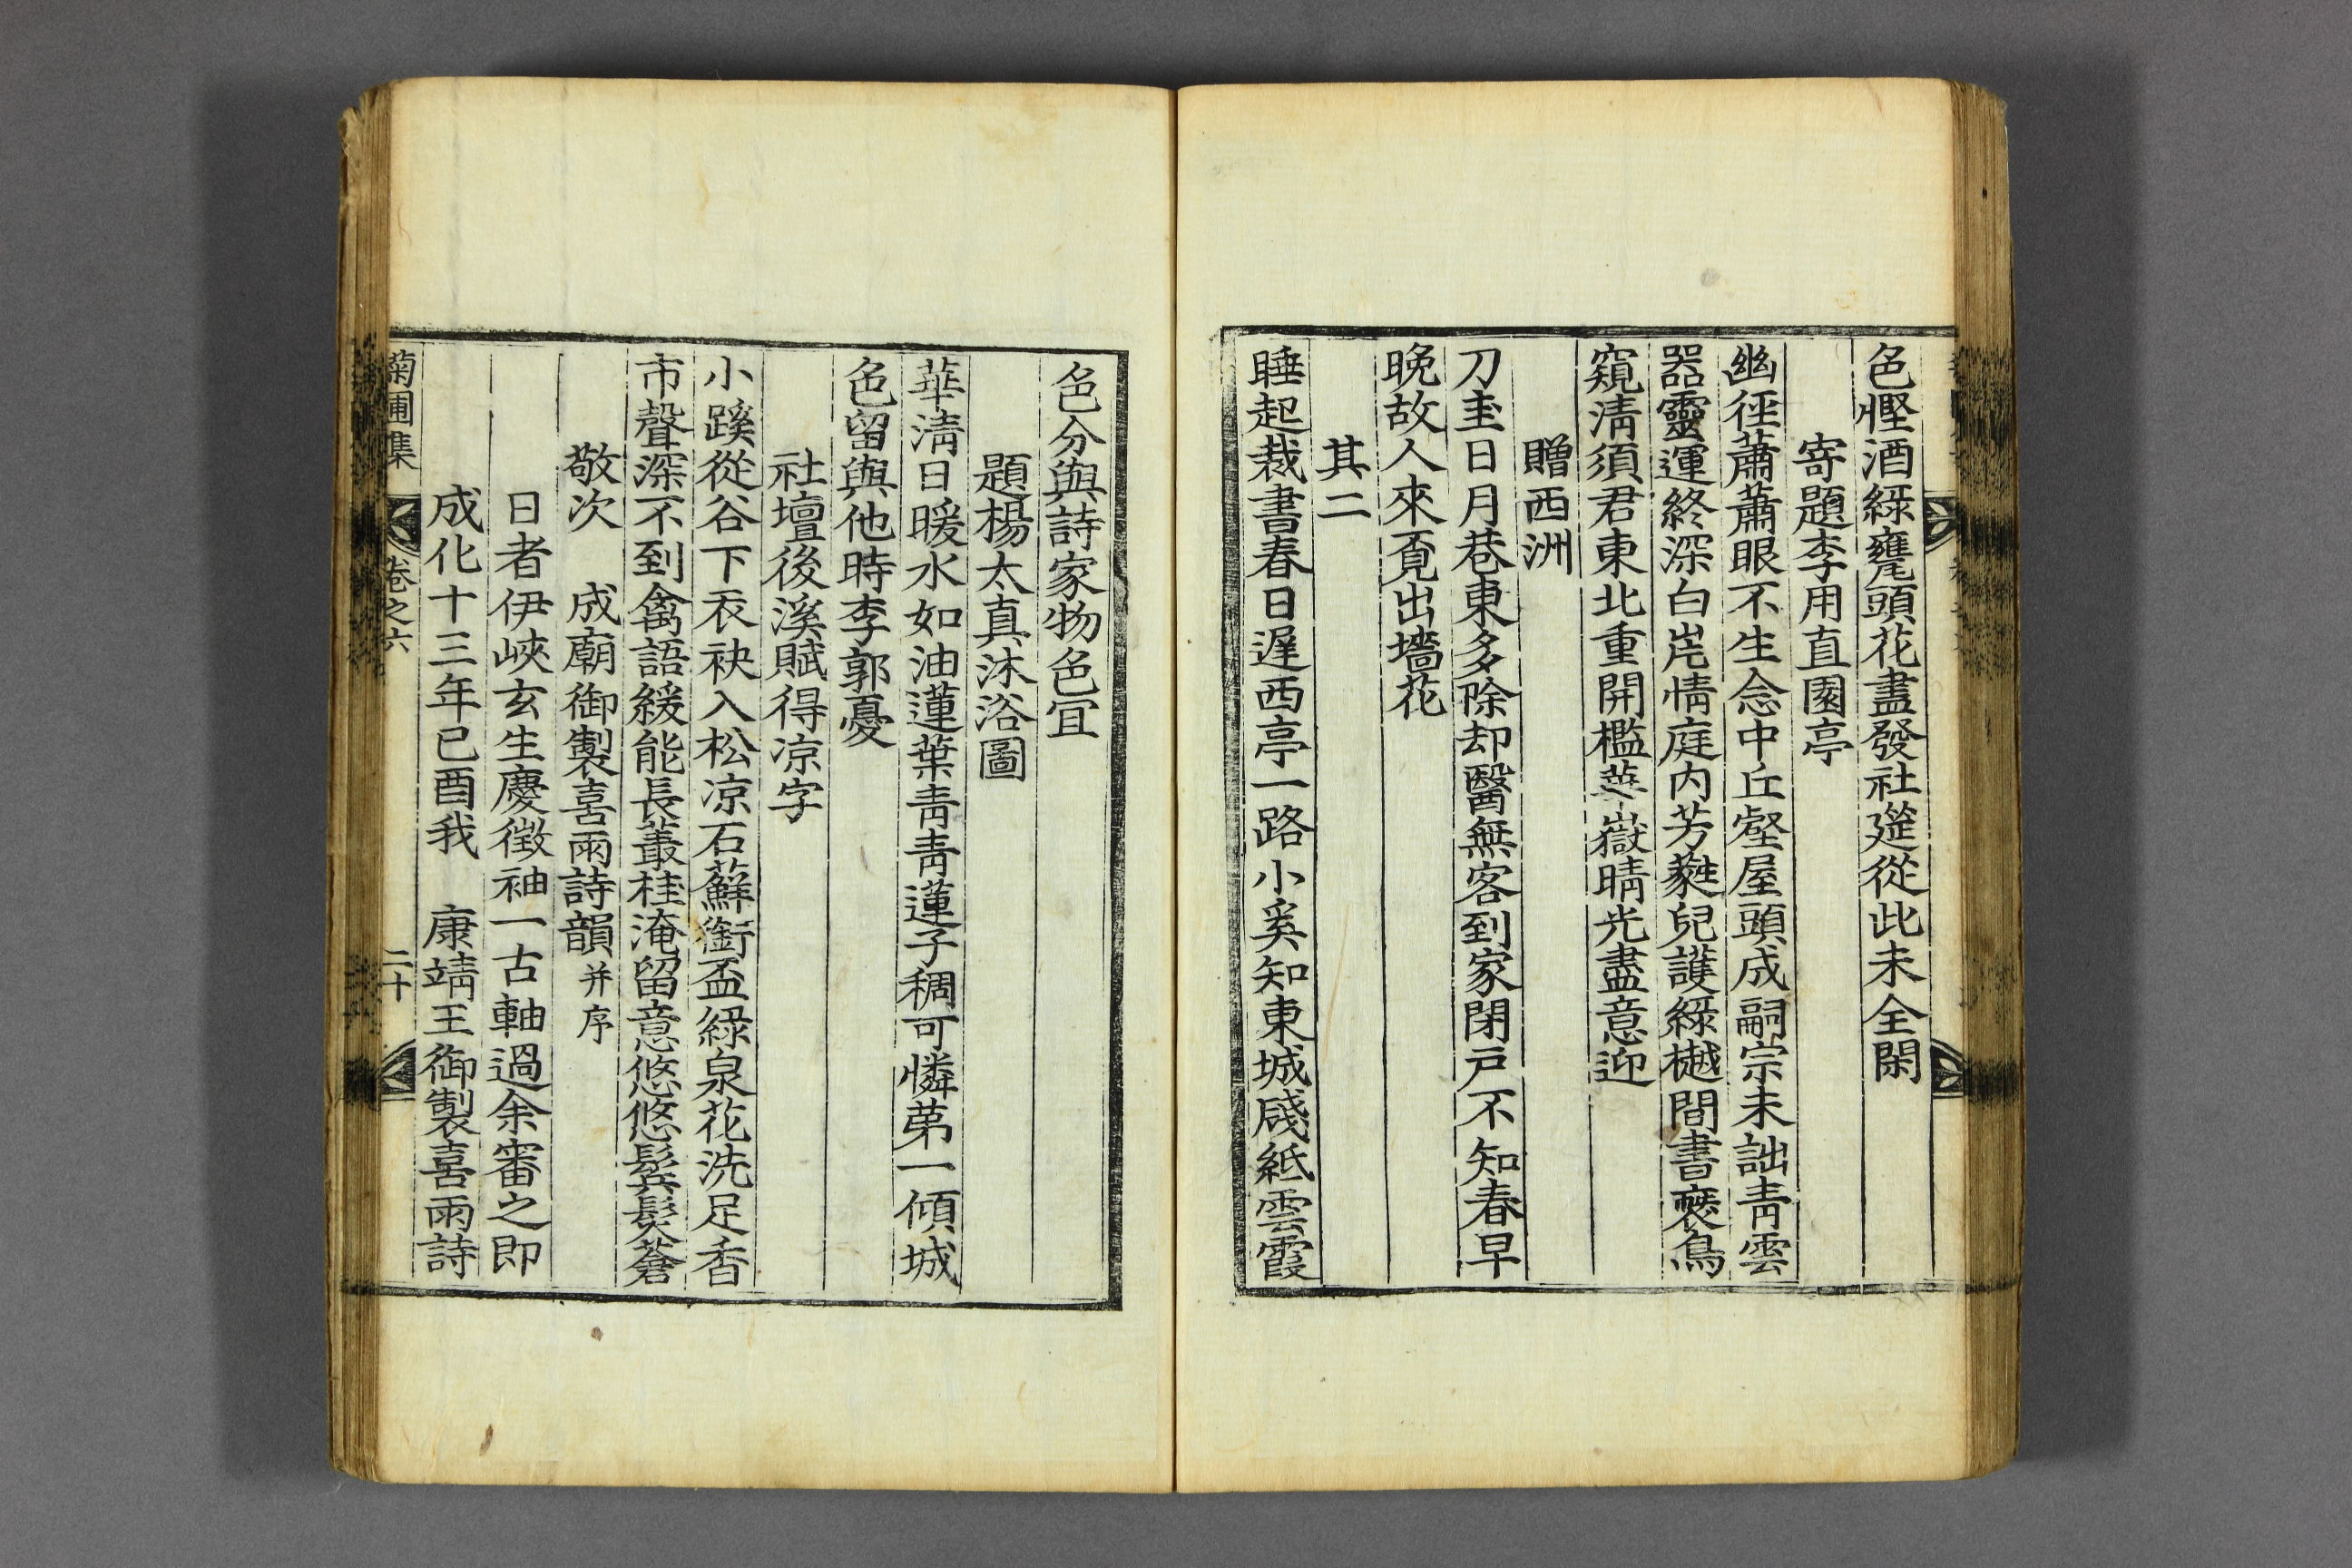 色慳酒綠甕頭花盡發社筵從此未全閑
寄題李用直園亭
幽徑蕭蕭眼不生念中丘壑屋頭成嗣宗未詘青雲
器靈運終深白岸情庭内芳蕤兒護綠樾間書褰鳥
窺淸須君東北重開檻華嶽晴光盡意迎
贈西洲
刀圭日月巷東多除却醫無客到家閉戸不知春早
晚故人來覔出墻花
其二
睡起裁書春日遲西亭一路小奚知東城牋紙雲霞
色分與詩家物色冝
題楊太真沐浴圖
華淸日暖水如油蓮葉靑靑蓮子稠可憐苐一傾城
色留與他時李郭憂
社壇後溪賦得凉字
小蹊從谷下衣袂入松凉石蘚銜盃綠泉花洗足香
市聲深不到禽語緩能長叢桂淹留意悠悠鬂髮蒼
敬次 成廟御製喜雨詩韻并序
日者伊峽玄生慶徵袖一古軸過余審之即
成化十三年已酉我 康靖王御製喜雨詩
菊圃集 卷之六 二十